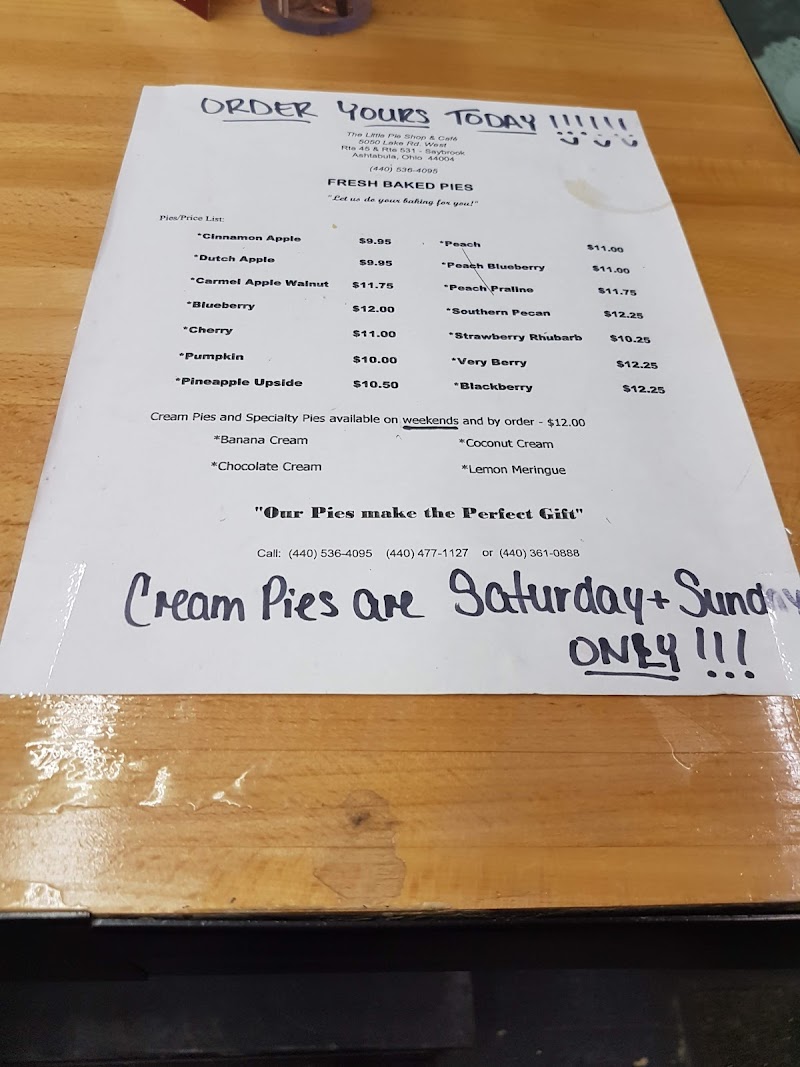 ORDER YOURS TODAY !!!!!!
The Little Pie Shop & Café
5050 Lake Rd. West
Rte 45 & Rte 531 - Saybrook
Ashtabula, Ohio 44004
(440) 536-4095
FRESH BAKED PIES
"Let us do your baking for you!"
Pies/Price List:
*Cinnamon Apple $9.95 *Peach $11.00
*Dutch Apple $9.95 *Peach Blueberry $11.00
*Carmel Apple Walnut $11.75 *Peach Praline $11.75
*Blueberry $12.00 *Southern Pecan $12.25
*Cherry $11.00 *Strawberry Rhubarb $10.25
*Pumpkin $10.00 *Very Berry $12.25
*Pineapple Upside $10.50 *Blackberry $12.25
Cream Pies and Specialty Pies available on weekends and by order - $12.00
*Banana Cream *Coconut Cream
*Chocolate Cream *Lemon Meringue
"Our Pies make the Perfect Gift"
Call: (440) 536-4095 (440) 477-1127 or (440) 361-0888
Cream Pies are Saturday + Sunday
ONLY !!!